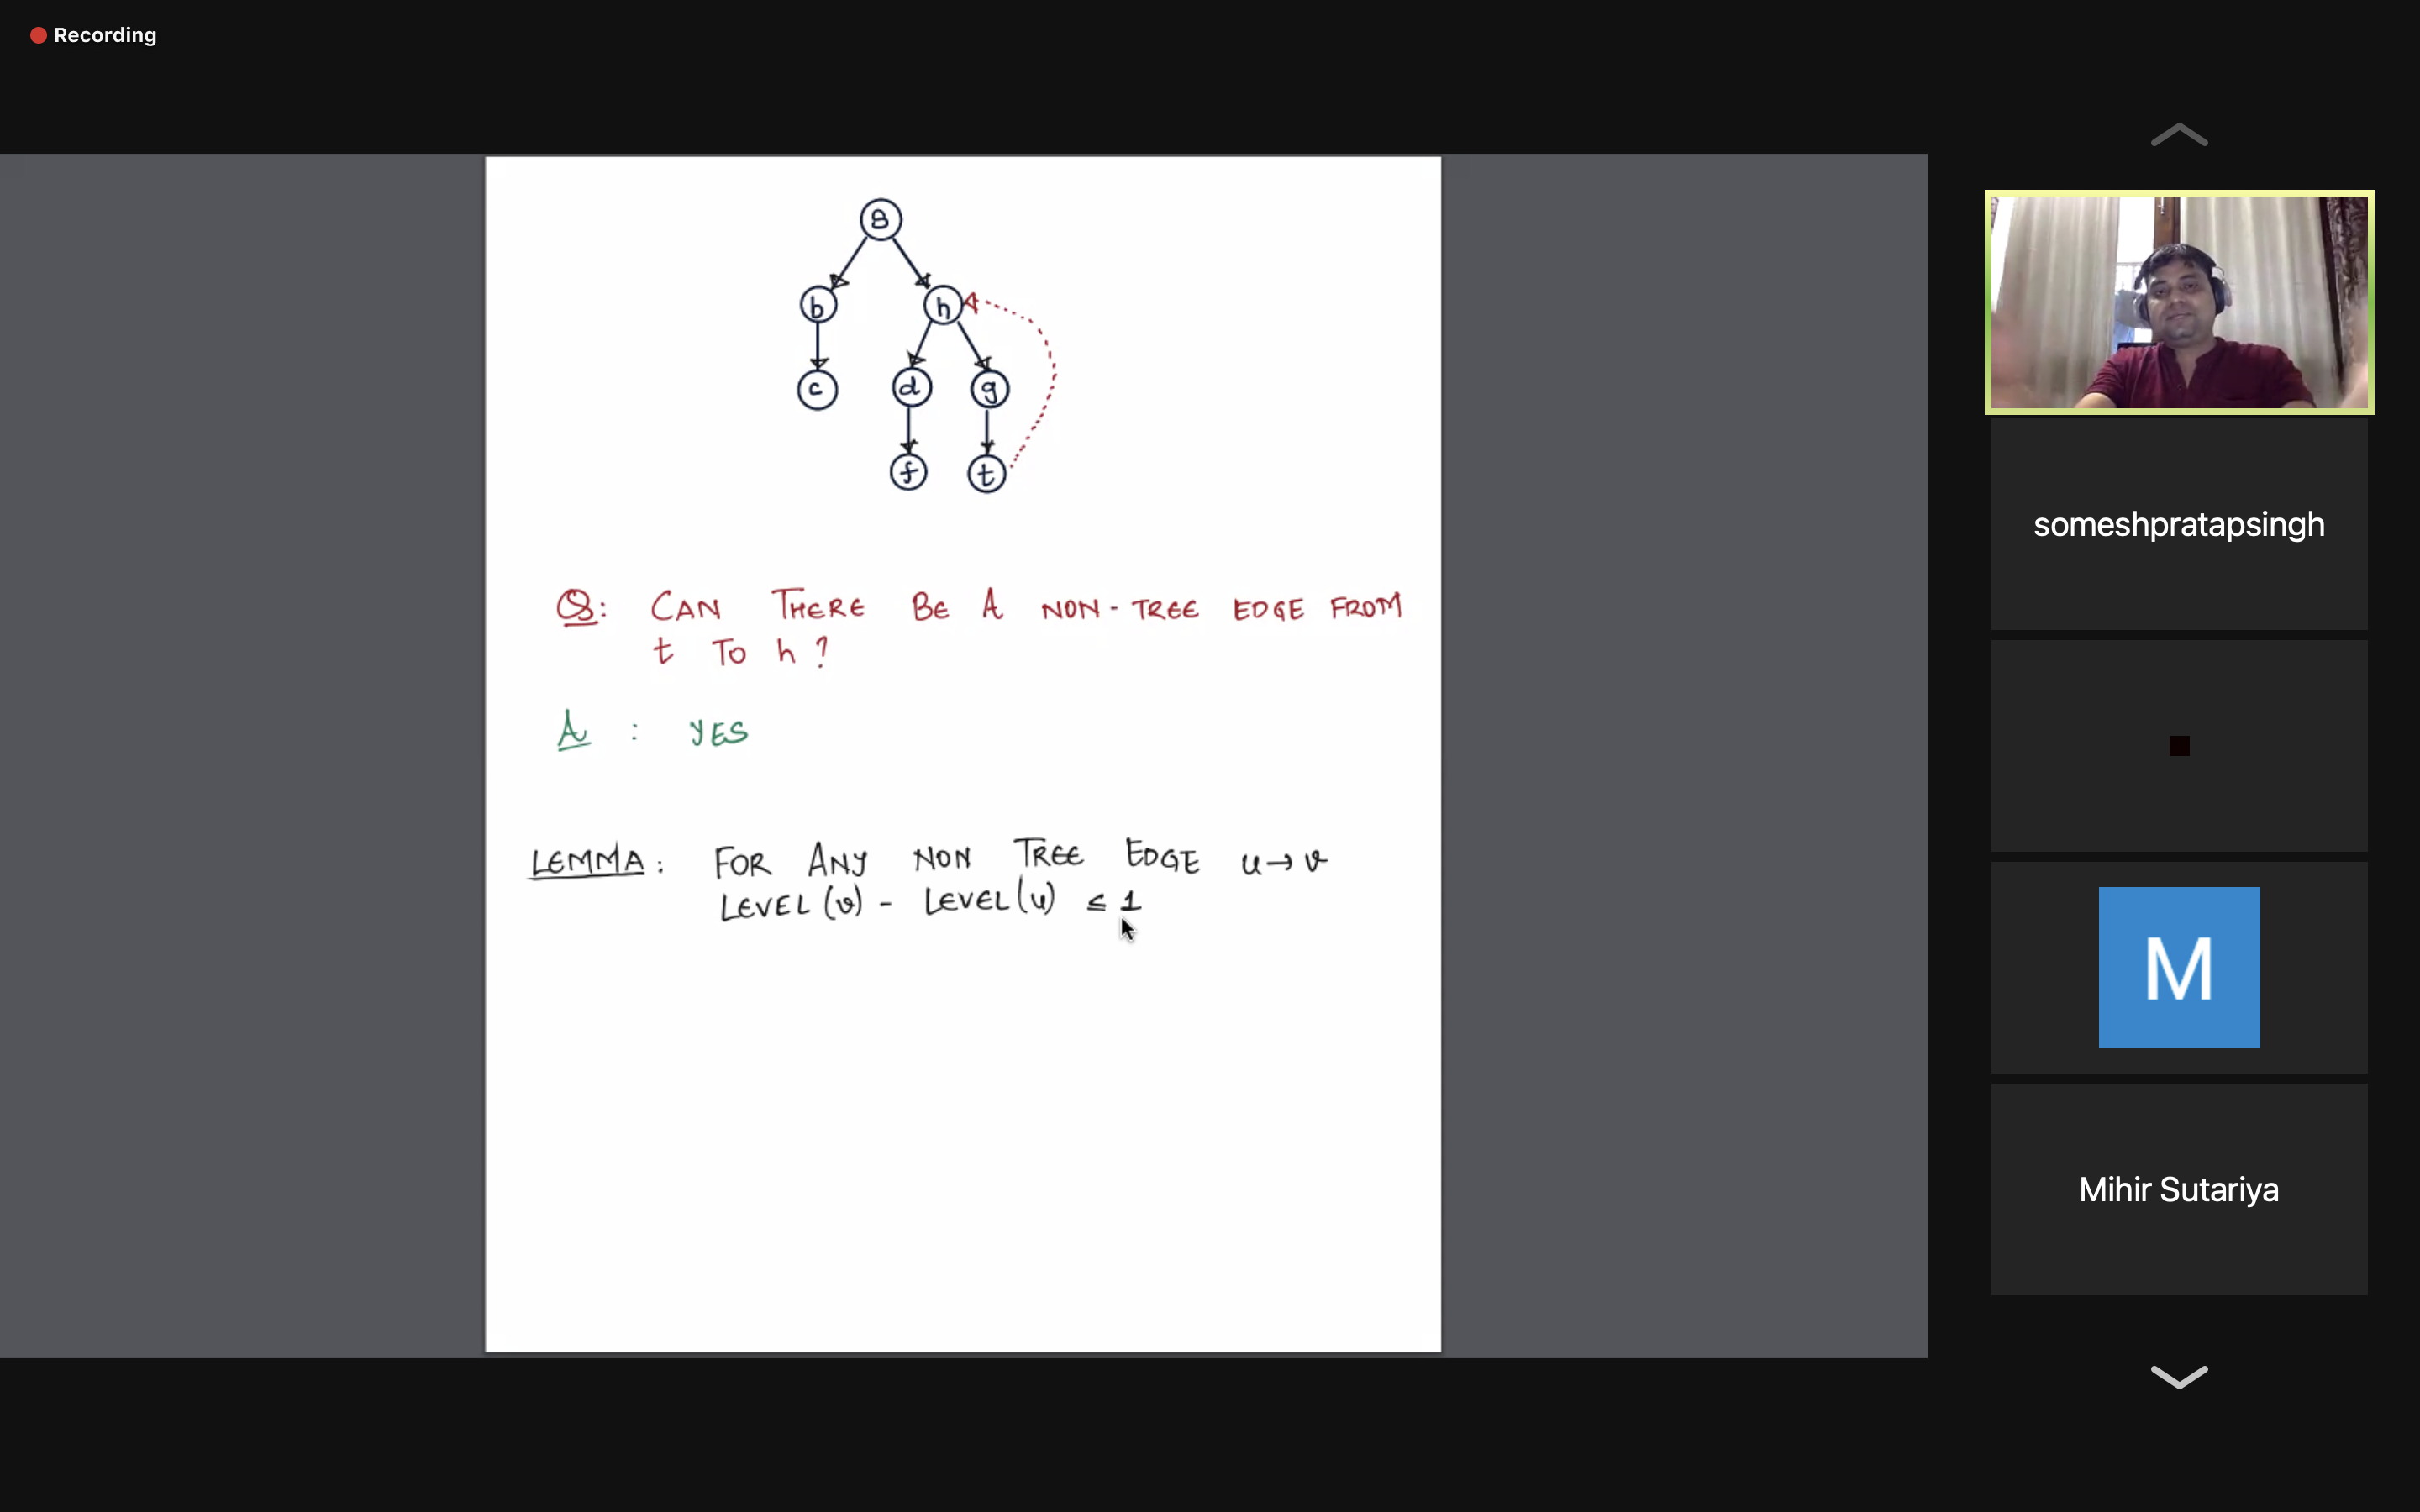 Recording
s
b
h
c
d
g
f
t
Q: CAN THERE BE A NON-TREE EDGE FROM
t TO h ?
A : YES
LEMMA: FOR ANY NON TREE EDGE u→v
LEVEL(v) - LEVEL(u) ≤ 1
someshpratapsingh
M
Mihir Sutariya